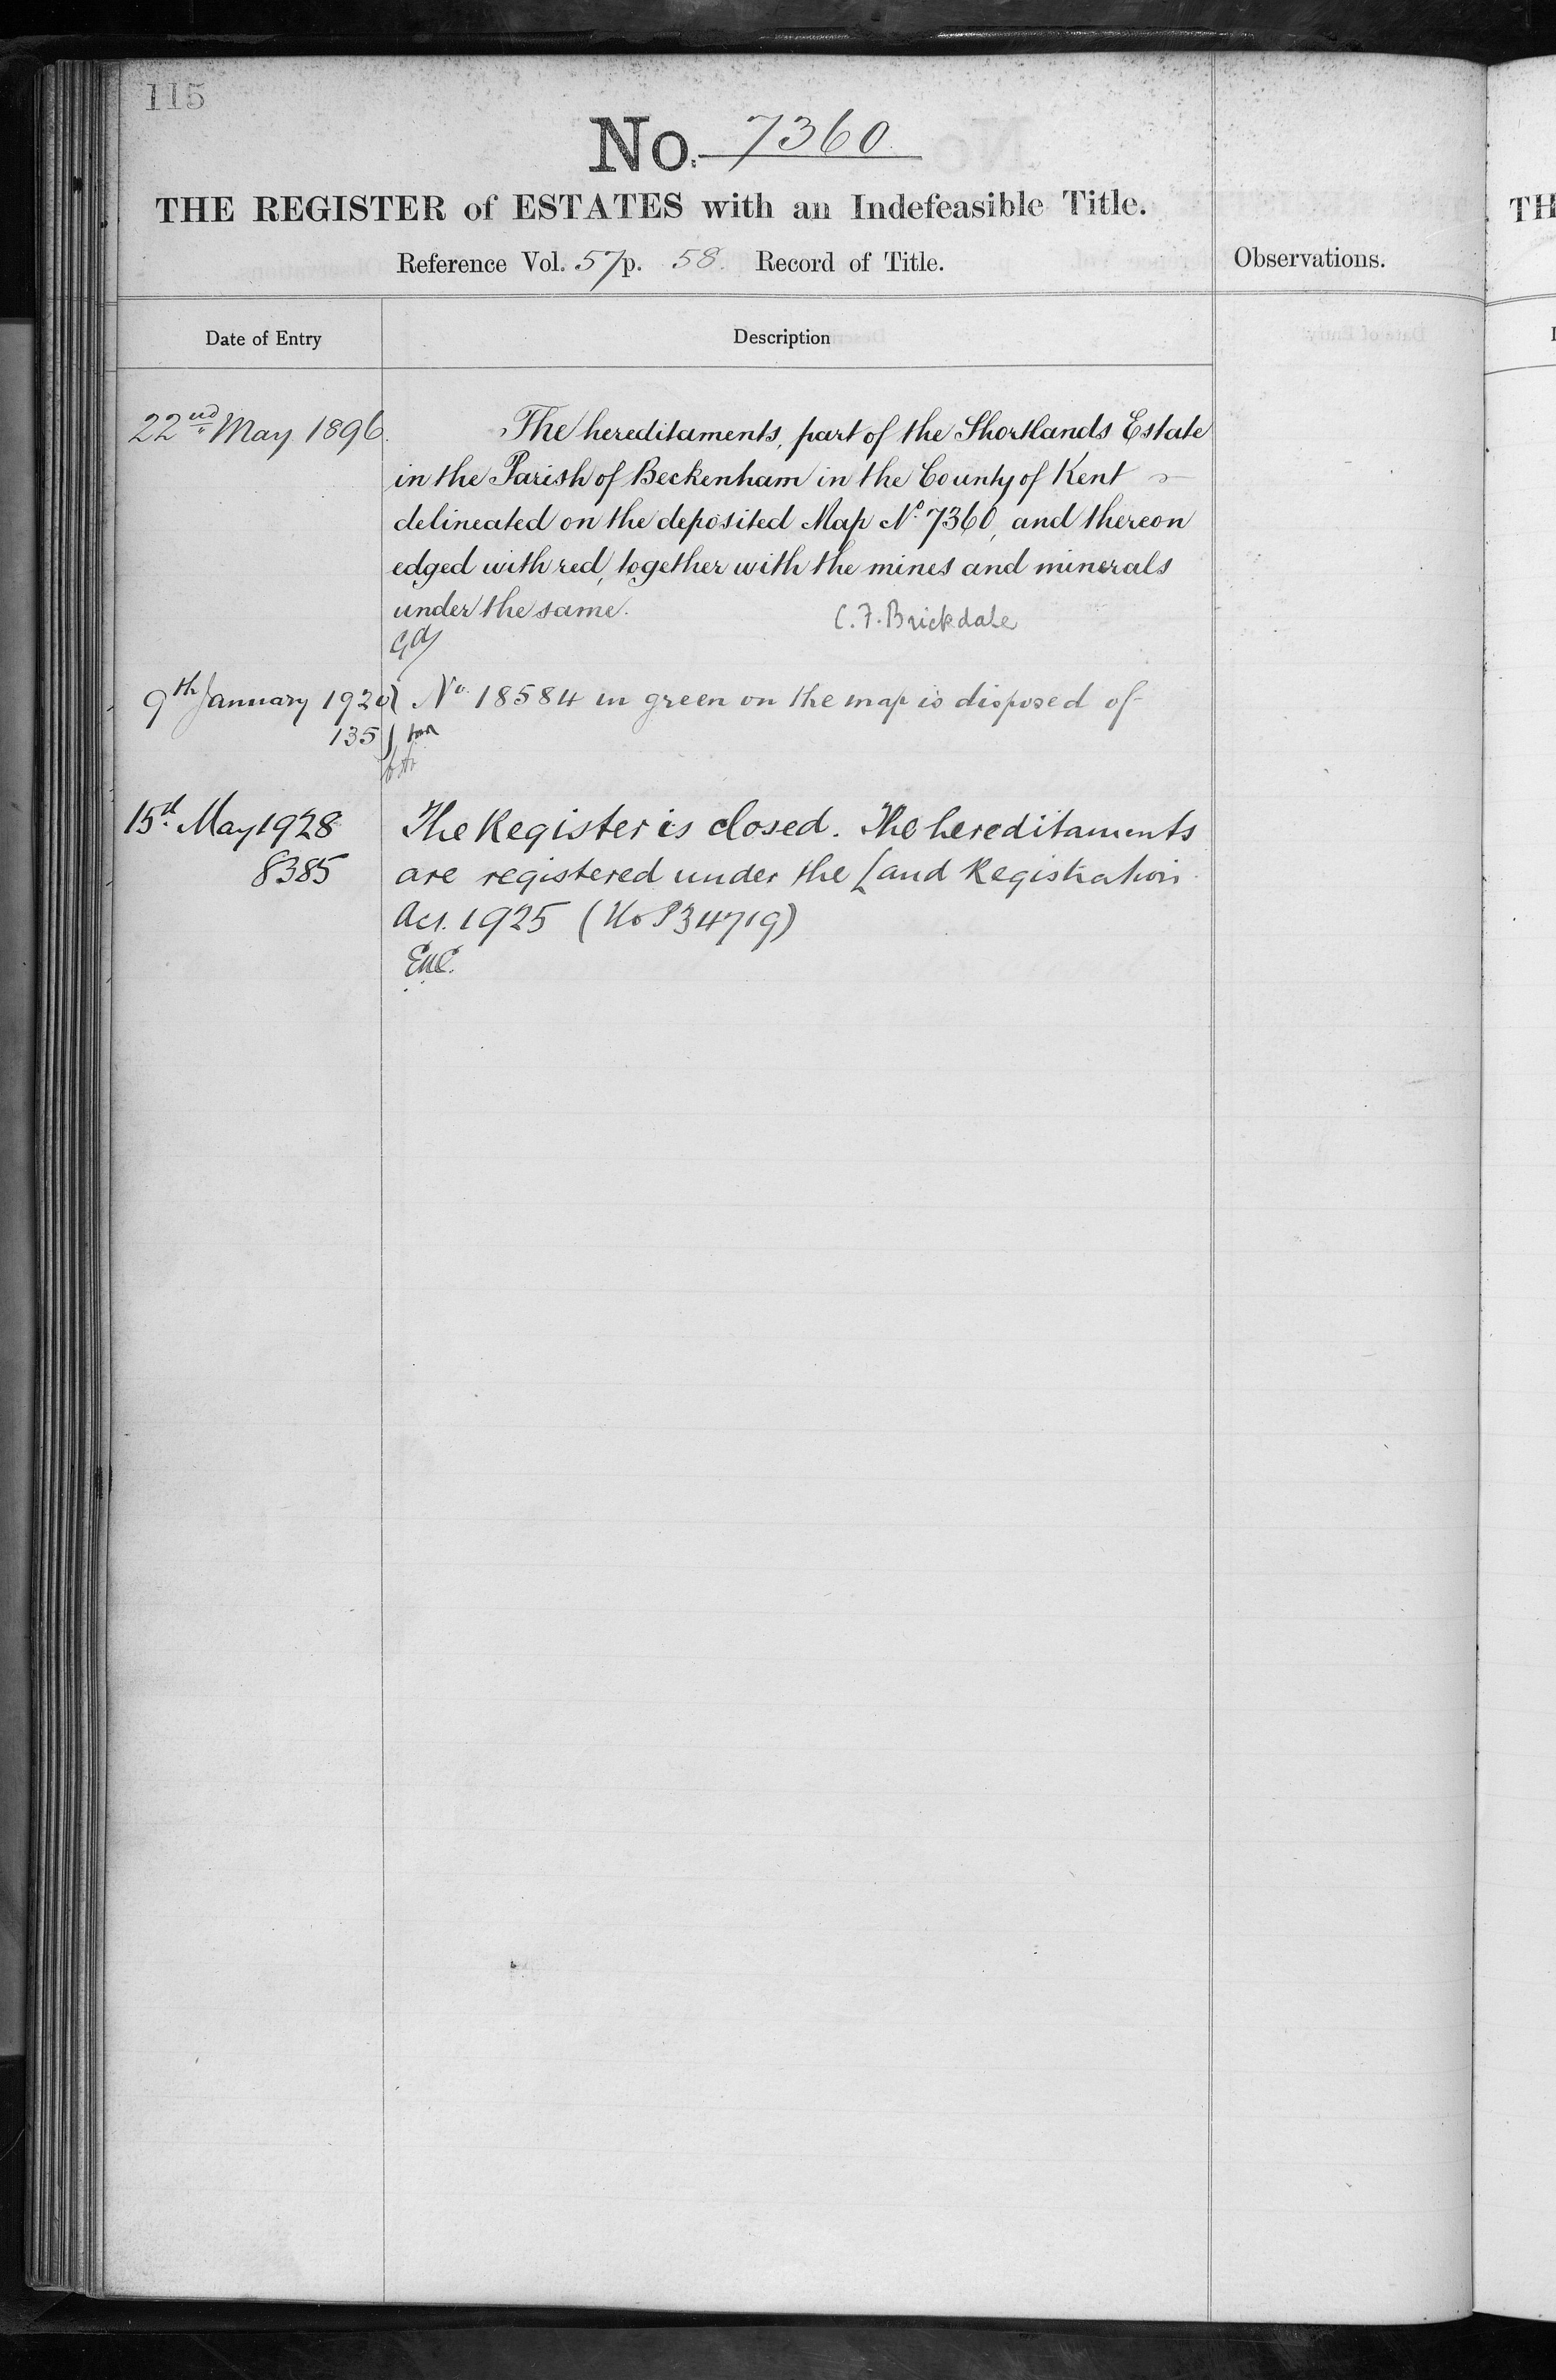 115
No. 7360
THE REGISTER of ESTATES with an Indefeasible Title.
Reference Vol. 57 p. 58. Record of Title.
Observations.
TH
Date of Entry
Description
22nd May 1896.
The hereditaments, part of the Shortlands Estate
in the Parish of Beckenham in the County of Kent
delineated on the deposited Map No. 7360, and thereon
edged with red, together with the mines and minerals
under the same.
C. F. Brickdale
9th January 1920 } No. 18584 in green on the map is disposed of
135
15th May 1928 The Register is closed. The hereditaments
8385 are registered under the Land Registration
Act. 1925 (No P34719)